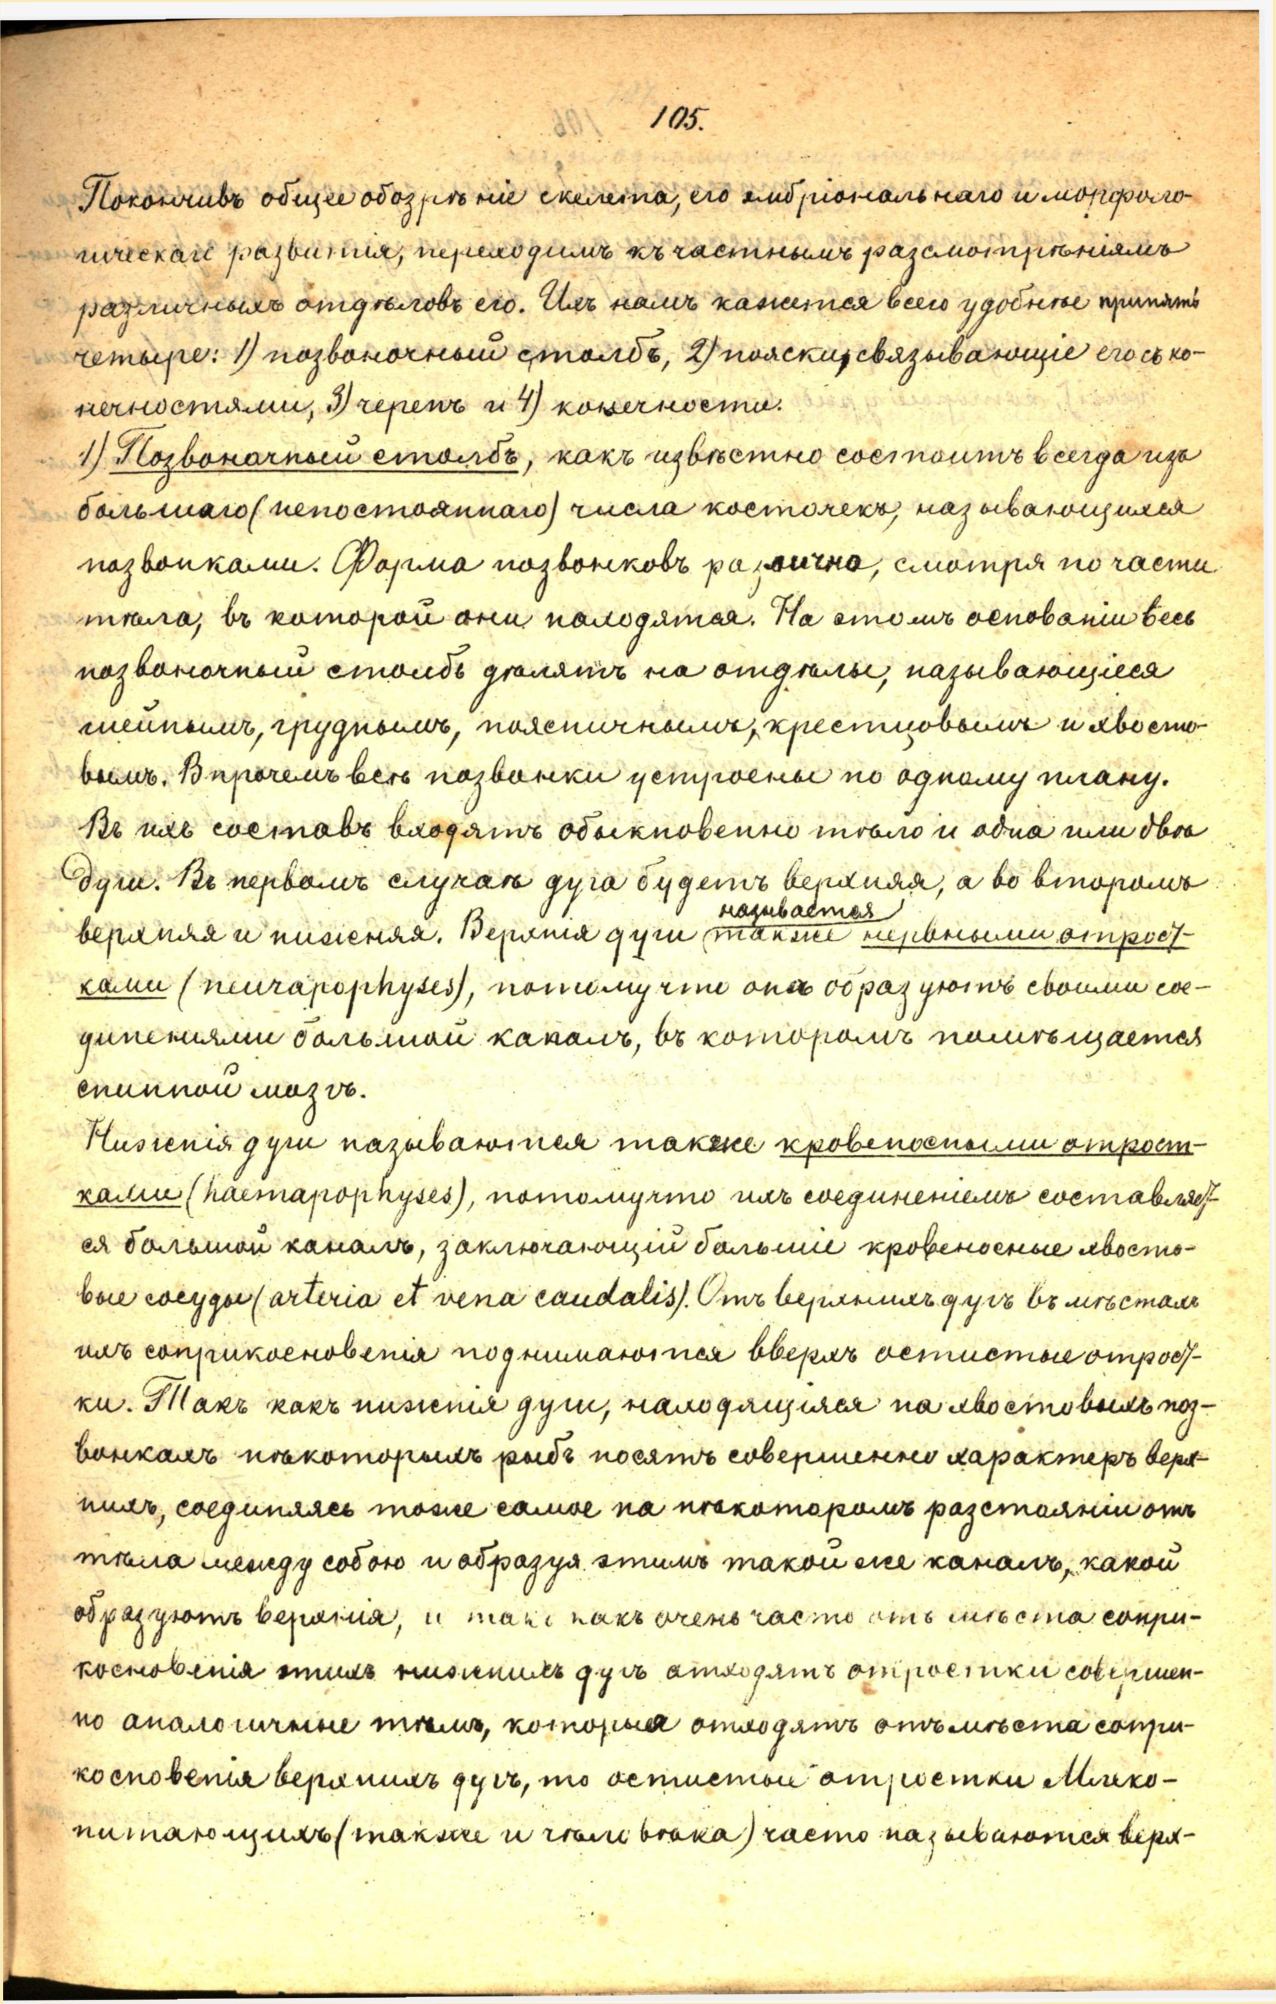 105.
Покончивъ общее обозрѣніе скелета, его эмбріональнаго и морфоло-
гическаго развитія, переходимъ къ частнымъ разсмотрѣніямъ
различныхъ отдѣловъ его. Ихъ намъ кажется всего удобнѣе принять
четыре: 1) позвоночный столбъ, 2) пояски, связывающіе его съ ко-
нечностями, 3) черепъ и 4) конечности.
1) Позвоночный столбъ, какъ извѣстно состоитъ всегда изъ
большаго (непостояннаго) числа косточекъ, называющихся
позвонками. Форма позвонковъ различна, смотря по части
тѣла, въ которой они находятся. На этомъ основаніи весь
позвоночный столбъ дѣлятъ на отдѣлы, называющіеся
шейнымъ, груднымъ, поясничнымъ, крестцовымъ и хвосто-
вымъ. Впрочемъ всѣ позвонки устроены по одному плану.
Въ ихъ составъ входятъ обыкновенно тѣло и одна или двѣ
дуги. Въ первомъ случаѣ дуга будетъ верхняя, а во второмъ
верхняя и нижняя. Верхнія дуги также называется нервными отрост-
ками (neurapophyses), потому что онѣ образуютъ своими сое-
диненіями большой каналъ, въ которомъ помѣщается
спинной мозгъ.
Нижнія дуги называются также кровеносными отрост-
ками (haemapophyses), потомучто ихъ соединеніемъ составляет-
ся большой каналъ, заключающій большіе кровеносные хвосто-
вые сосуды (arteria et vena caudalis). Отъ верхнихъ дугъ въ мѣстахъ
ихъ соприкосновенія поднимаются вверхъ остистые отрост-
ки. Такъ какъ нижнія дуги, находящіяся на хвостовыхъ поз-
вонкахъ нѣкоторыхъ рыбъ носятъ совершенно характеръ верх-
нихъ, соединяясь тоже самое на нѣкоторомъ разстояніи отъ
тѣла между собою и образуя этимъ такой же каналъ, какой
образуютъ верхнія, и такъ какъ очень часто отъ мѣста сопри-
косновенія этихъ нижнихъ дугъ отходятъ отростки совершен-
но аналогичные тѣмъ, которыя отходятъ отъ мѣста сопри-
косновенія верхнихъ дугъ, то остистые отростки Млеко-
питающихъ (также и человѣка) часто называются верх-